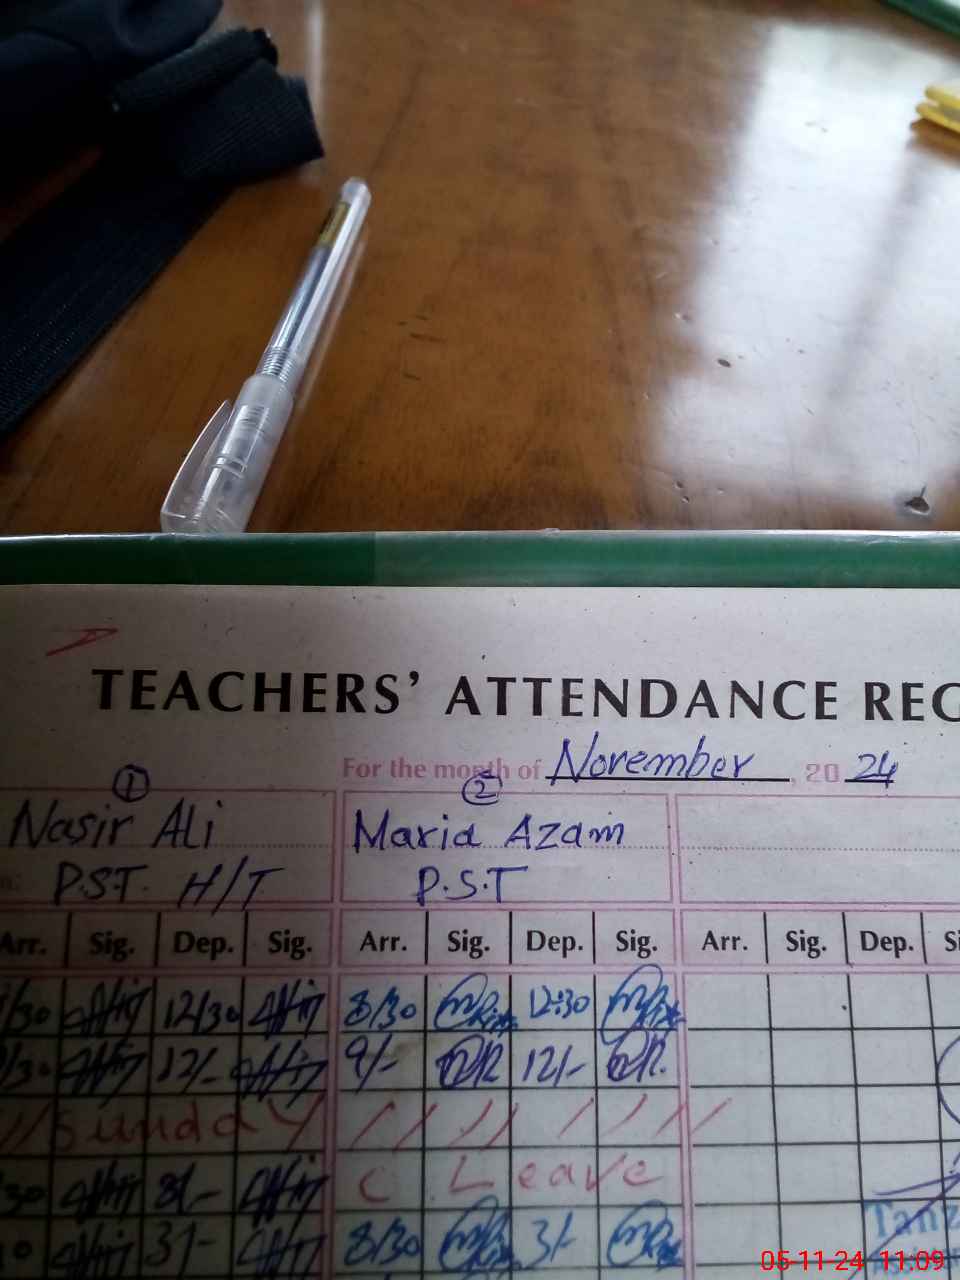 TEACHERS' ATTENDANCE REG
For the month of November, 20 24
1 2
Nasir Ali Maria Azam
P.S.T. H/T P.S.T
Arr. Sig. Dep. Sig. Arr. Sig. Dep. Sig. Arr. Sig. Dep. Si
/30 12/30 8/30 12:30
/30 12/- 9/- 12/-
Sunday
30 C Leave
0 3/- 8/30 3/-
Tanz
05-11-24 11:09